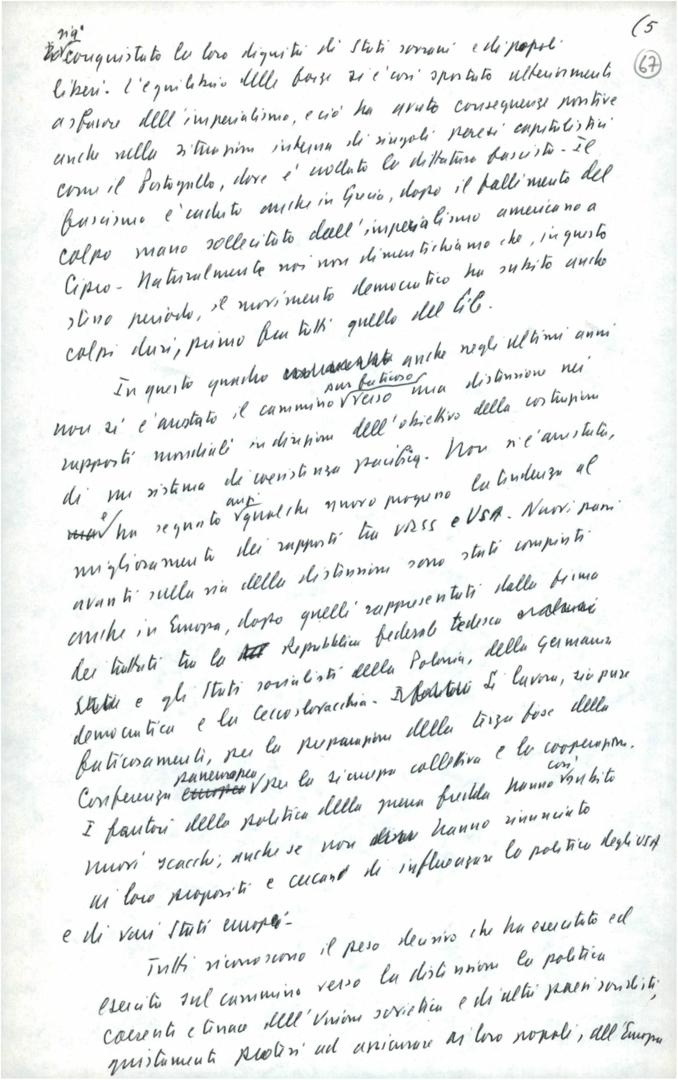 (5
67
già
conquistato la loro dignità di Stati sovrani e di popoli
liberi. L'equilibrio delle forze si è così spostato ulteriormente
a sfavore dell'imperialismo, e ciò ha avuto conseguenze positive
anche nella situazione interna di singoli paesi capitalistici
come il Portogallo, dove è crollata la dittatura fascista. Il
fascismo è caduto anche in Grecia, dopo il fallimento del
colpo mano sollecitato dall'imperialismo americano a
Cipro. Naturalmente noi non dimentichiamo che, in questo
stesso periodo, il movimento democratico ha subito anche
colpi duri, primo fra tutti quello del Cile.
In questo quadro anche negli ultimi anni
pur faticoso
non si è arrestato il cammino verso una distensione nei
rapporti mondiali in direzione dell'obiettivo della costruzione
di un sistema di coesistenza pacifica. Non si è arrestata,
e anzi
ha segnato qualche nuovo progresso la tendenza al
miglioramento dei rapporti tra URSS e USA. Nuovi passi
avanti sulla via della distensione sono stati compiuti
anche in Europa, dopo quelli rappresentati dalla firma
dei trattati tra la Repubblica federale tedesca
e gli Stati socialisti della Polonia, della Germania
democratica e la Cecoslovacchia. Si lavora, sia pure
faticosamente, per la preparazione della terza fase della
paneuropea
Conferenza europea per la sicurezza collettiva e la cooperazione.
così
I fautori della politica della guerra fredda hanno subito
nuovi scacchi, anche se non hanno rinunciato
ai loro propositi e cercano di influenzare la politica degli USA
e di vari Stati europei.
Tutti riconoscono il peso decisivo che ha esercitato ed
esercita sul cammino verso la distensione la politica
coerente e tenace dell'Unione sovietica e di altri paesi socialisti,
giustamente protesi ad assicurare ai loro popoli, all'Europa